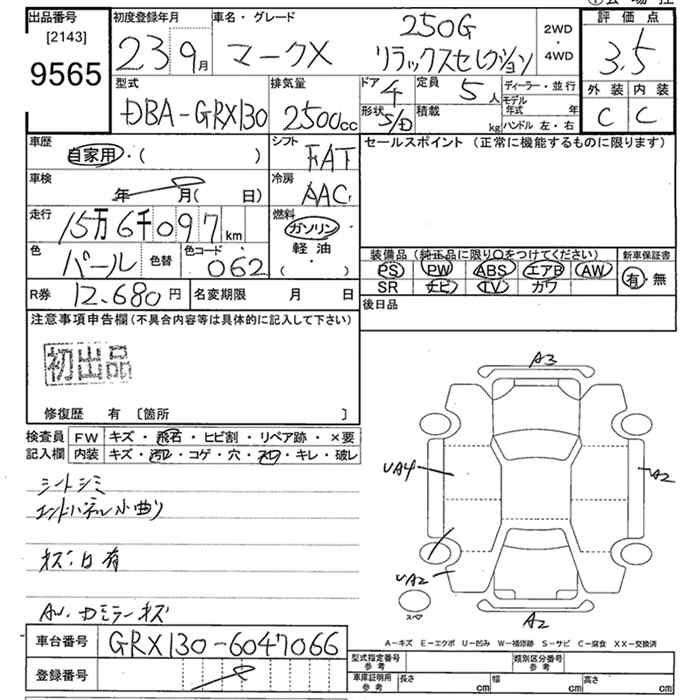 出品番号
[2143]
9565
初度登録年月
23 9月
車名・グレード
マークX
250G
リラックスセレクション
2WD
・
4WD
評価点
3.5
外装 内装
C C
型式
DBA-GRX130
排気量
2500cc
ドア 4
形状 S/D
定員 5人
積載 kg
ディーラー・並行
モデル年式 年
ハンドル 左・右
車歴
自家用・( )
シフト
FAT
車検
年 月( 日)
冷房
AAC
走行
15万6千097km
燃料
ガソリン
軽油
( ・ )
色
パール
色替
色コード
062
R券 12,680円
名変期限 月 日
セールスポイント (正常に機能するものに限ります)
装備品 (純正品に限り○をつけてください)
PS PW ABS エアB AW
SR ナビ TV カワ
新車保証書
有・無
後日品
注意事項申告欄(不具合内容等は具体的に記入して下さい)
初出品
修復歴 有 〔箇所 〕
検査員記入欄
FW キズ・飛石・ヒビ割・リペア跡・×要
内装 キズ・汚レ・コゲ・穴・スレ・キレ・破レ
シートシミ
エンドパネル小曲り
キズ凹有
AW・Dミラーキズ
A3
UA4
A2
UA2
A2
スペア
A－キズ E－エクボ U－凹み W－補修跡 S－サビ C－腐食 XX－交換済
車台番号 GRX130-6047066
登録番号
型式指定番号 参考
類別区分番号 参考
車庫証明用 参考
長さ cm 幅 cm 高さ cm